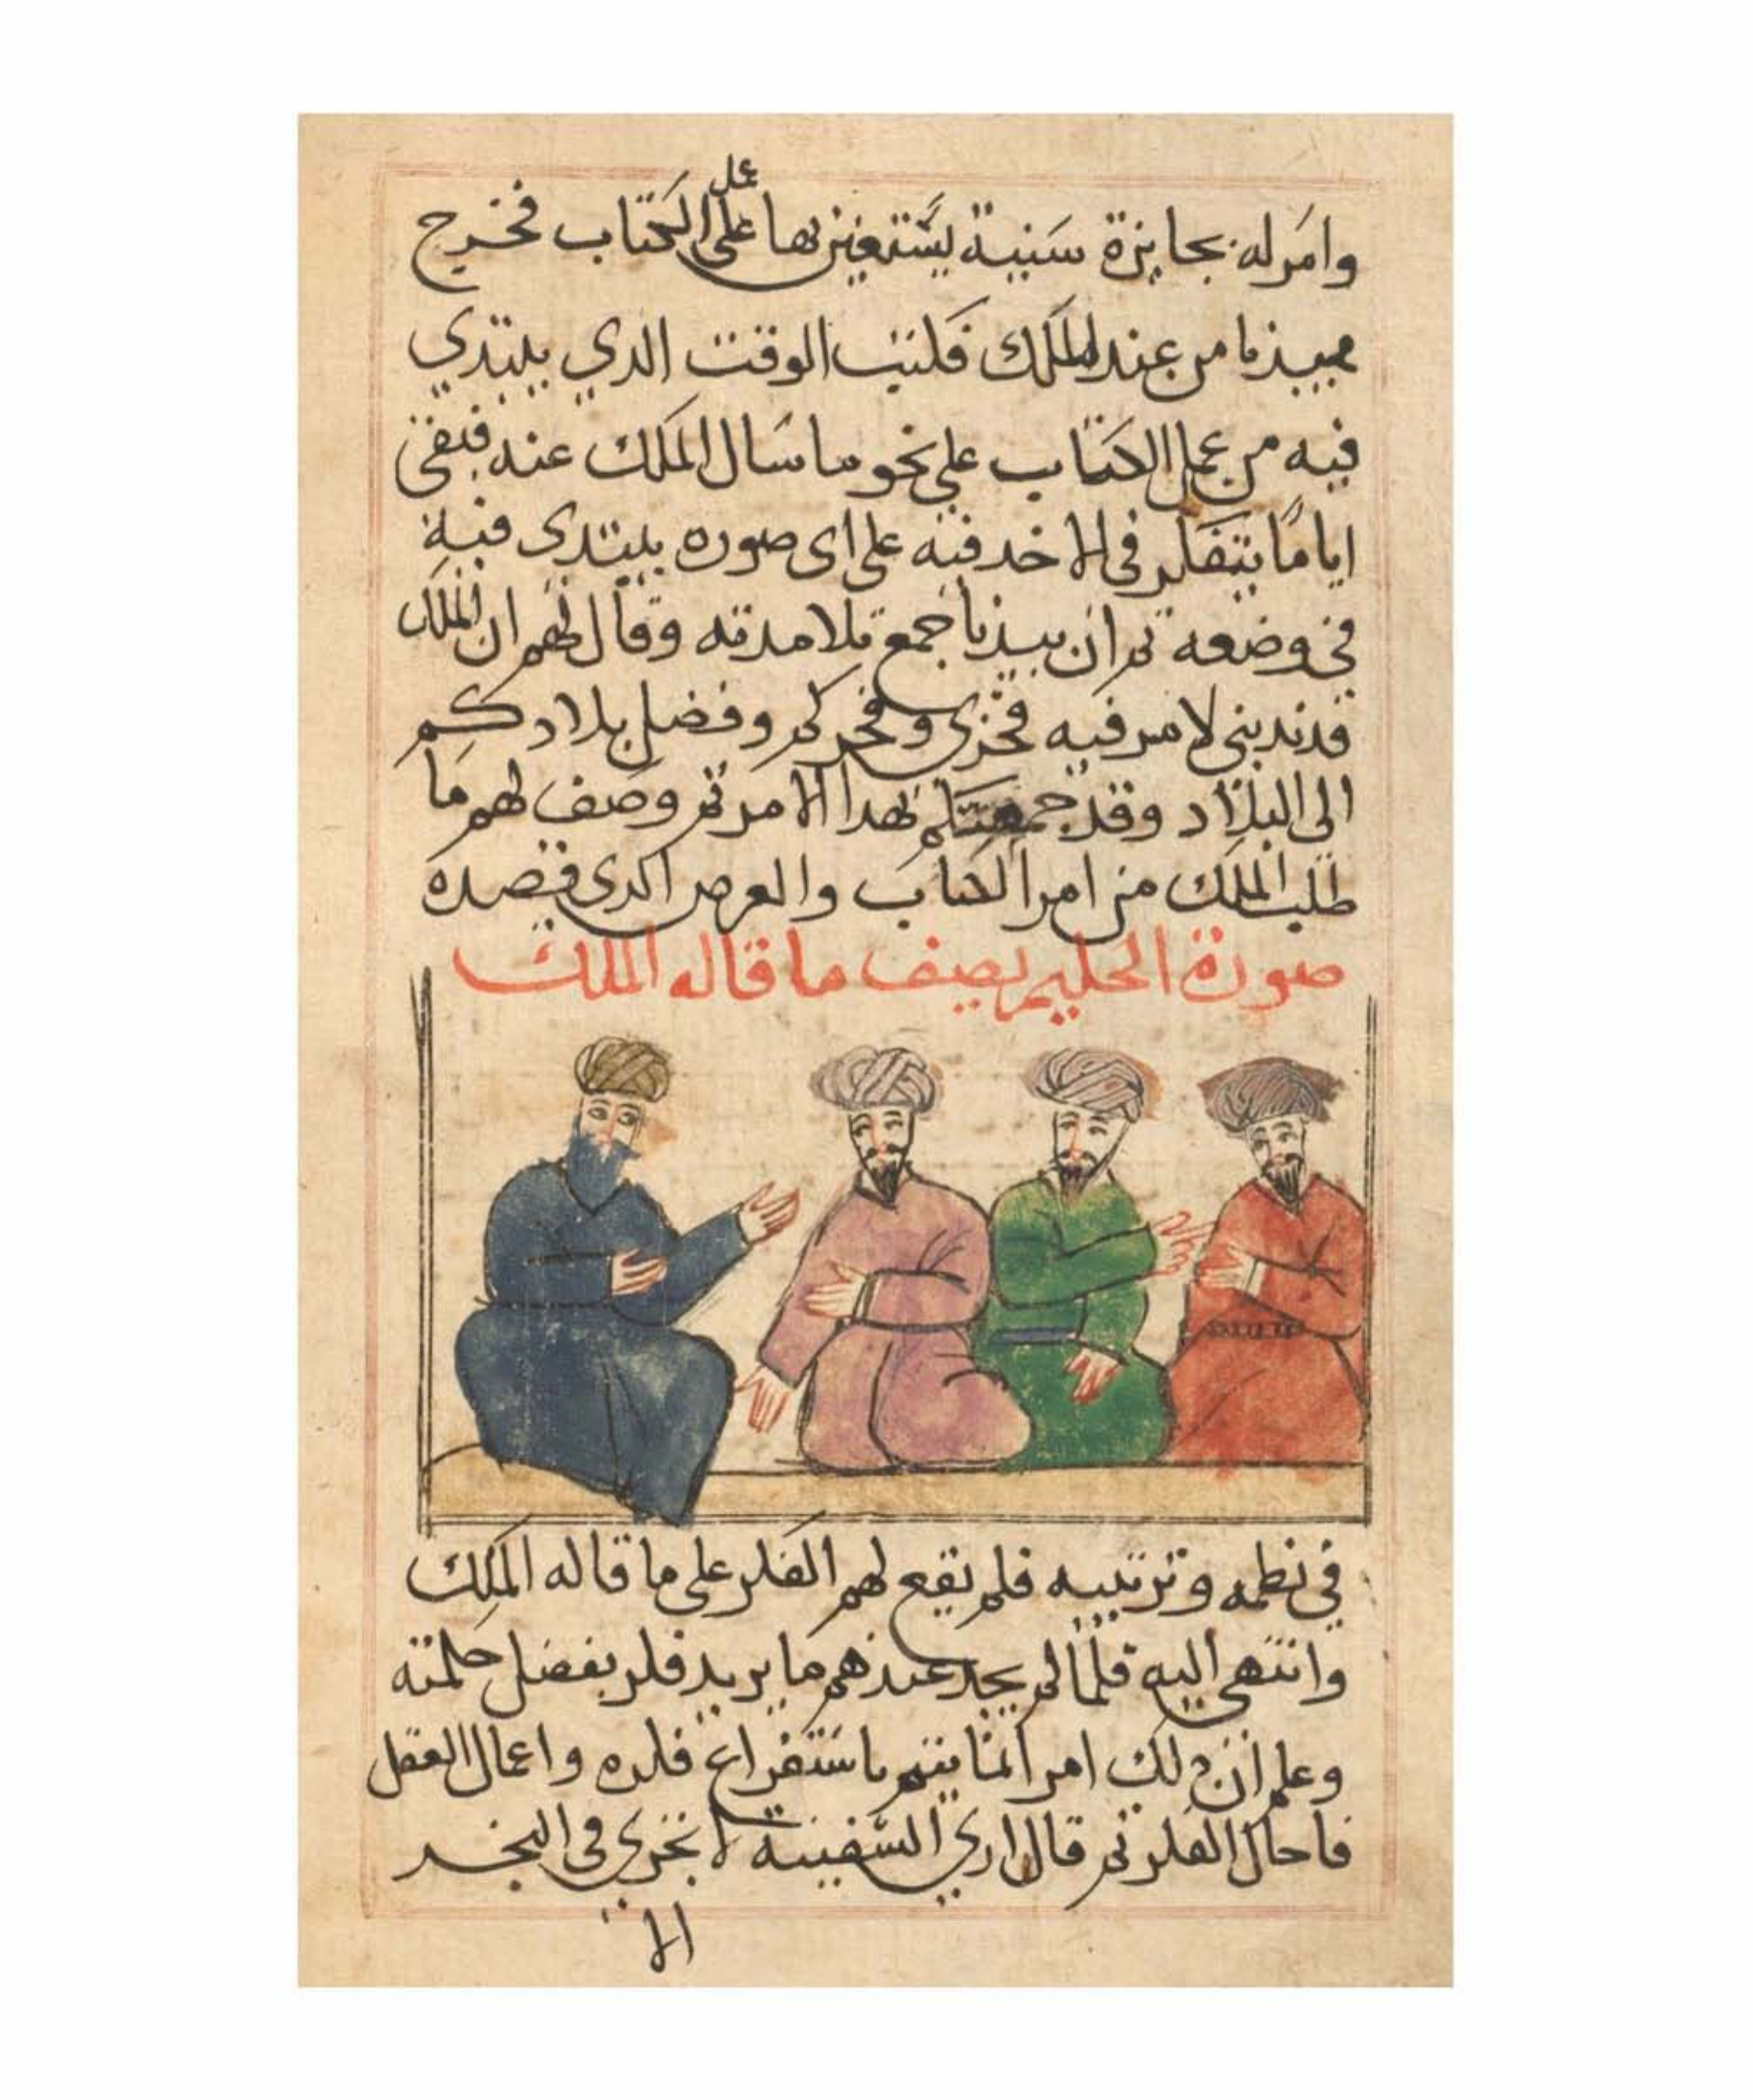 عمل
وامر له بجايزة سنية يستعين بها على الكتاب فخرج
بيدنا من عند الملك فكتب الوقت الدي يبتدي
فيه من عمل الكتاب على نحو ما سال الملك عنه فبقى
اياما يتفكر في الاخد فيه على اى صوره يبتدى فيه
في وضعه ثم ان بيدنا جمع تلامدته وقال لهم ان الملك
قد ندبني لامر فيه فخرى وفخركم وفضل بلادكم
الى البلاد وقد جمعتكم لهدا الامر ثم وصف لهم ما
طلب الملك من امر الكتاب والعرض الدى قصده
صورة الحكيم يصف ما قاله الملك
في نظمه وترتيبه فلم يقع لهم الفكر على ما قاله الملك
وانتهى اليه فلما لم يجد عندهم ما يريد فكر بفضل حكمته
وعلم ان دلك امر انما يتم باستفراغ فكره واعمال العقل
فاحال الفكر ثم قال ارى السفينة لا تجرى في البحر
الا